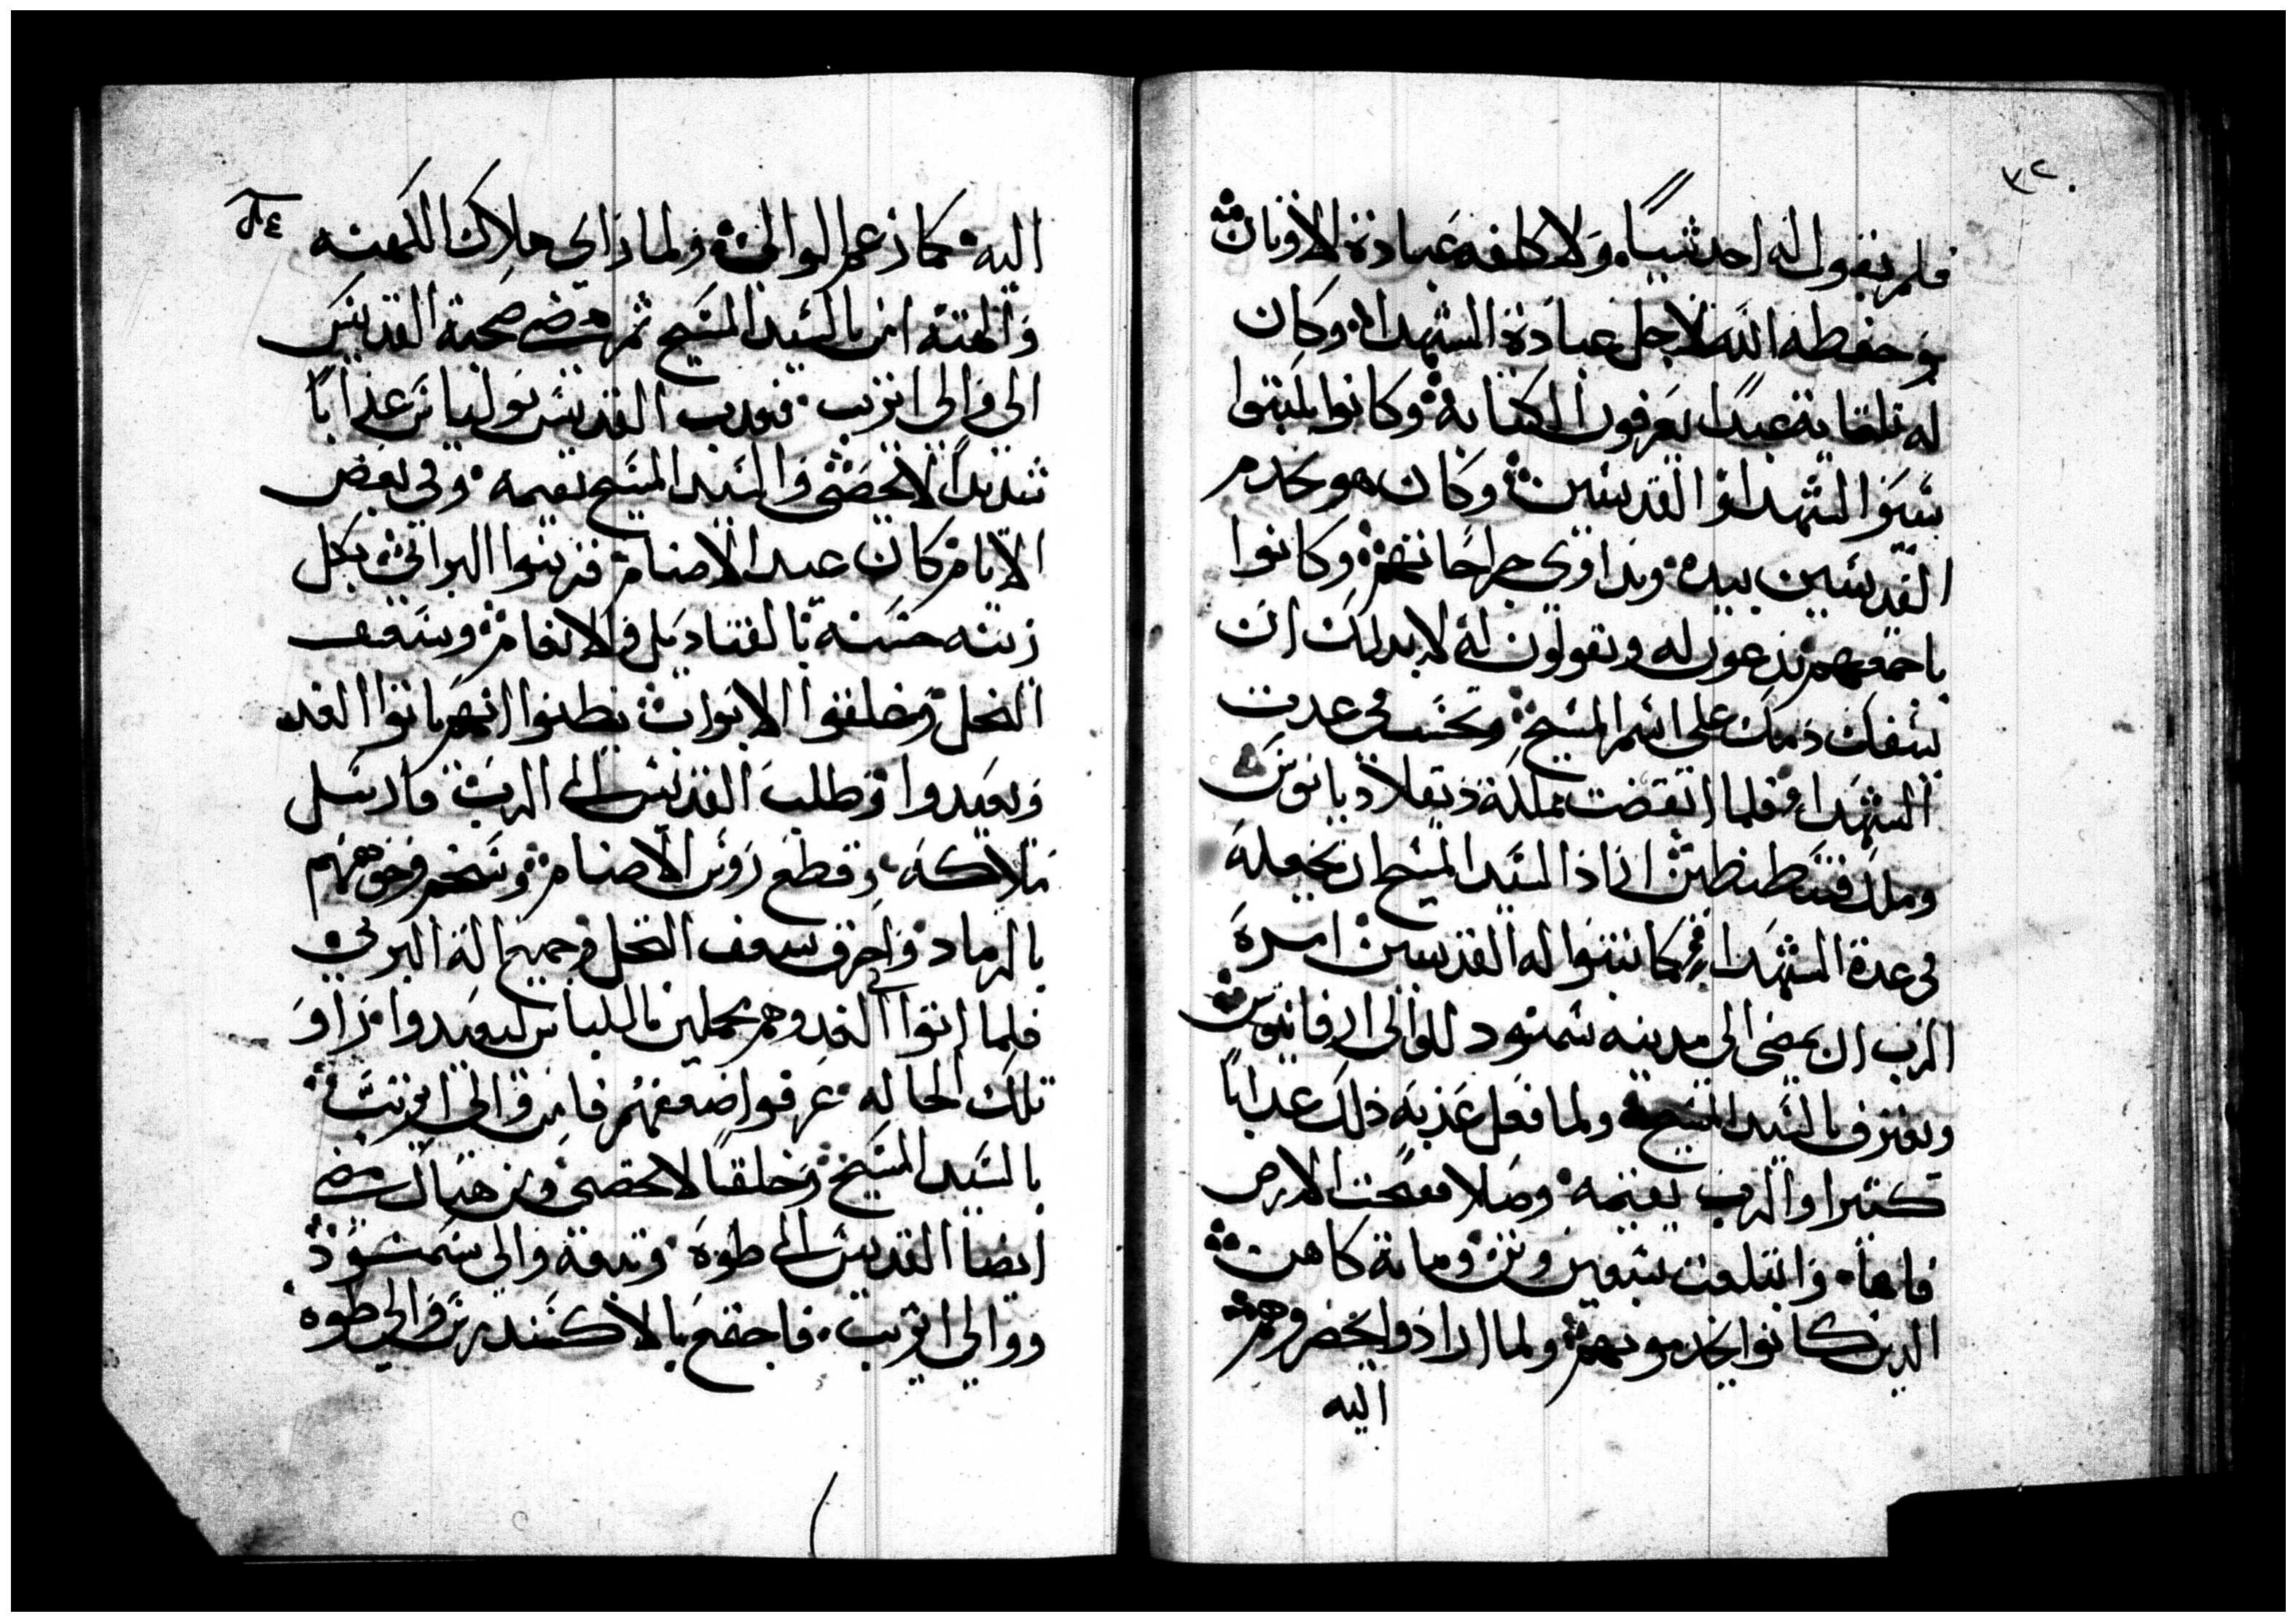 ٣٢
فلم يقول له احد شيياً ولا كلفه عبادة الاوثان
وحفظه الله لاجل عبادة الشهدا وكان
له تلتماية عبداً يعرفون الكتابة وكانوا يكتبوا
سير الشهدا والقديسين وكان هو يخدم
القديسين بيده ويداوي جراحاتهم وكانوا
باجمعهم يدعون له ويقولون له لابد لك ان
يسفك دمك على اسم المسيح وتحسب في عدت
الشهدا فلما انقضت مملكة دقلاديانوس
وملك قسطنطين اراد السيد المسيح ان يجعله
في عدة الشهدا كما تنبوا له القديسين امره
الرب ان يمضى الى مدينه سمنود للوالي ارمانيوس
ويعترف بالسيد المسيح ولما فعل عذبه ذلك عداباً
كتيرا والرب يقيمه وصلا ففتحت الارض
فاها وابتلعت سبعين وتن وماية كاهن
الدين كانوا يخدمونهم ولما ارادوا يحضروهم
اليه
٢٤
اليه كما زعم الوالي ولما راي هلاك الكهنه
والهته امن بالسيد المسيح ثم مضى صحبة القديس
الى والى اتريب فعدب القديس يوليانس عذاباً
شديداً لا يحصى والسيد المسيح يقيمه وفي بعض
الايام كان عيد الاصنام فزينوا البرابي بكل
زينه حسنه بالقناديل والانغام وسعف
النخل وغلقوا الابواب يظنوا انهم ياتوا الغد
ويعيدوا وطلب القديس الى الرب فارسل
ملاكه وقطع روس الاصنام وسخم وجوههم
بالرماد واحرق سعف النخل وجميع الة البربي
فلما اتوا في الغد وهم مجملين باللباس ليعيدوا وراو
تلك الحاله عرفوا ضعفهم فامن والي اتريب
بالسيد المسيح وخلقاً لا يحصى ومن هناك مضى
ايضا القديس الى طوه وتبعه والي سمنود
ووالي اتريب فاجتمع بالاكسندرس والي طوه